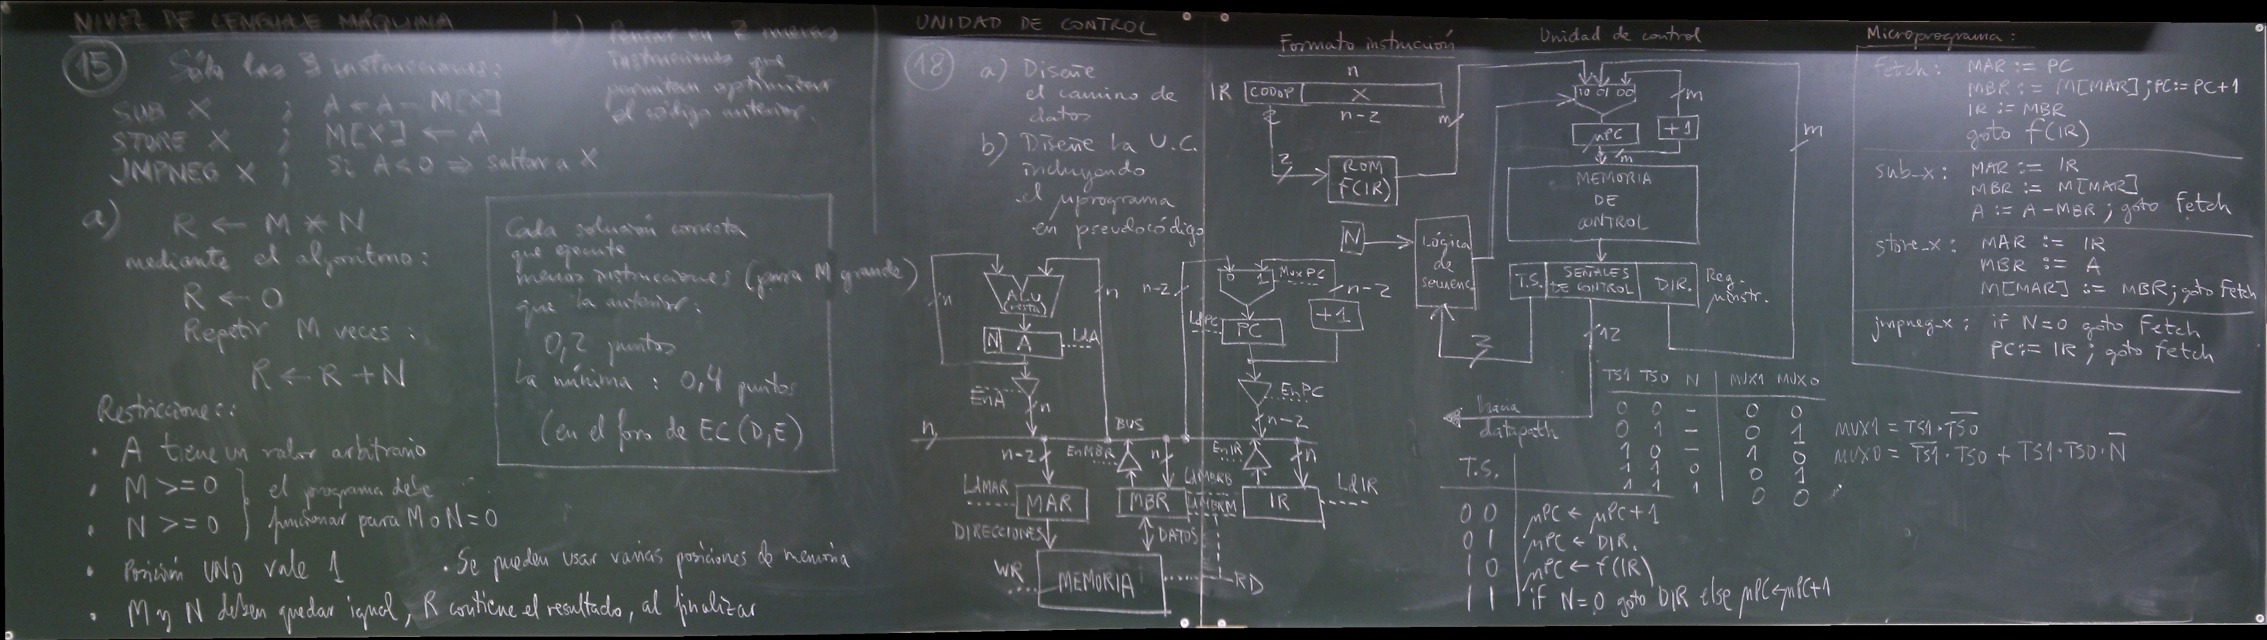 NIVEL DE LENGUAJE MÁQUINA
15
Sólo las 3 instrucciones:
SUB X ; A ← A - M[X]
STORE X ; M[X] ← A
JMPNEG X ; Si A<0 ⇒ saltar a X
a)
R ← M * N
mediante el algoritmo:
R ← 0
Repetir M veces:
R ← R + N
Restricciones:
• A tiene un valor arbitrario
• M >= 0
• N >= 0
el programa debe
funcionar para M o N = 0
• Posición UNO vale 1
• Se pueden usar varias posiciones de memoria
• M y N deben quedar igual, R contiene el resultado, al finalizar
b) Pensar en 2 nuevas
instrucciones que
permitan optimizar
el código anterior.
Cada solución correcta
que ejecute
menos instrucciones (para M grande)
que la anterior:
0,2 puntos
La mínima: 0,4 puntos
(en el foro de EC (D,E)
UNIDAD DE CONTROL
18
a) Diseñe
el camino de
datos
b) Diseñe la U.C.
incluyendo
el μprograma
en pseudocódigo
n
ALU
(resta)
n
N A
LdA
EnA
n
n-2
0 1
MuxPC
n-2
LdPC
PC
+1
EnPC
n-2
n
BUS
n-2
EnMBR
n
EnIR
n
LdMAR
MAR
MBR
LdMBRB
LdMBRM
IR
LdIR
DIRECCIONES
DATOS
WR
MEMORIA
RD
Formato instrución
n
IR
CODOP X
2
n-2
2
ROM
f(IR)
m
Unidad de control
10 01 00
m
μPC
+1
m
m
MEMORIA
DE
CONTROL
N
Lógica
de
secuenc.
T.S.
SEÑALES
DE CONTROL
DIR.
Reg.
μinstr.
2
12
hacia
datapath
TS1 TS0 N MUX1 MUX0
0 0 - 0 0
0 1 - 0 1
1 0 - 1 0
1 1 0 0 1
1 1 1 0 0
MUX1 = TS1·T̅S̅0̅
MUX0 = T̅S̅1̅·TS0 + TS1·TS0·N̅
T.S.
0 0 μPC ← μPC+1
0 1 μPC ← DIR.
1 0 μPC ← f(IR)
1 1 if N=0 goto DIR else μPC←μPC+1
Microprograma:
fetch: MAR := PC
MBR := M[MAR]; PC:=PC+1
IR := MBR
goto f(IR)
sub_x: MAR := IR
MBR := M[MAR]
A := A-MBR; goto fetch
store_x: MAR := IR
MBR := A
M[MAR] := MBR; goto fetch
jmpneg_x: if N=0 goto fetch
PC:= IR; goto fetch